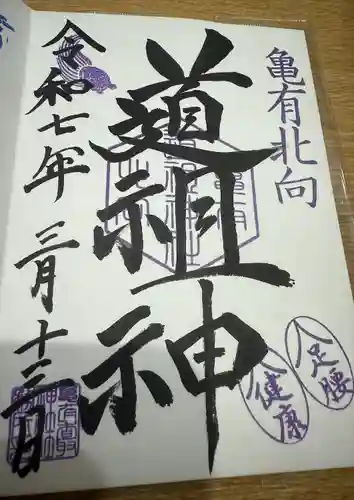 亀有北向
道祖神
足腰
健康
令和七年 三月十三日